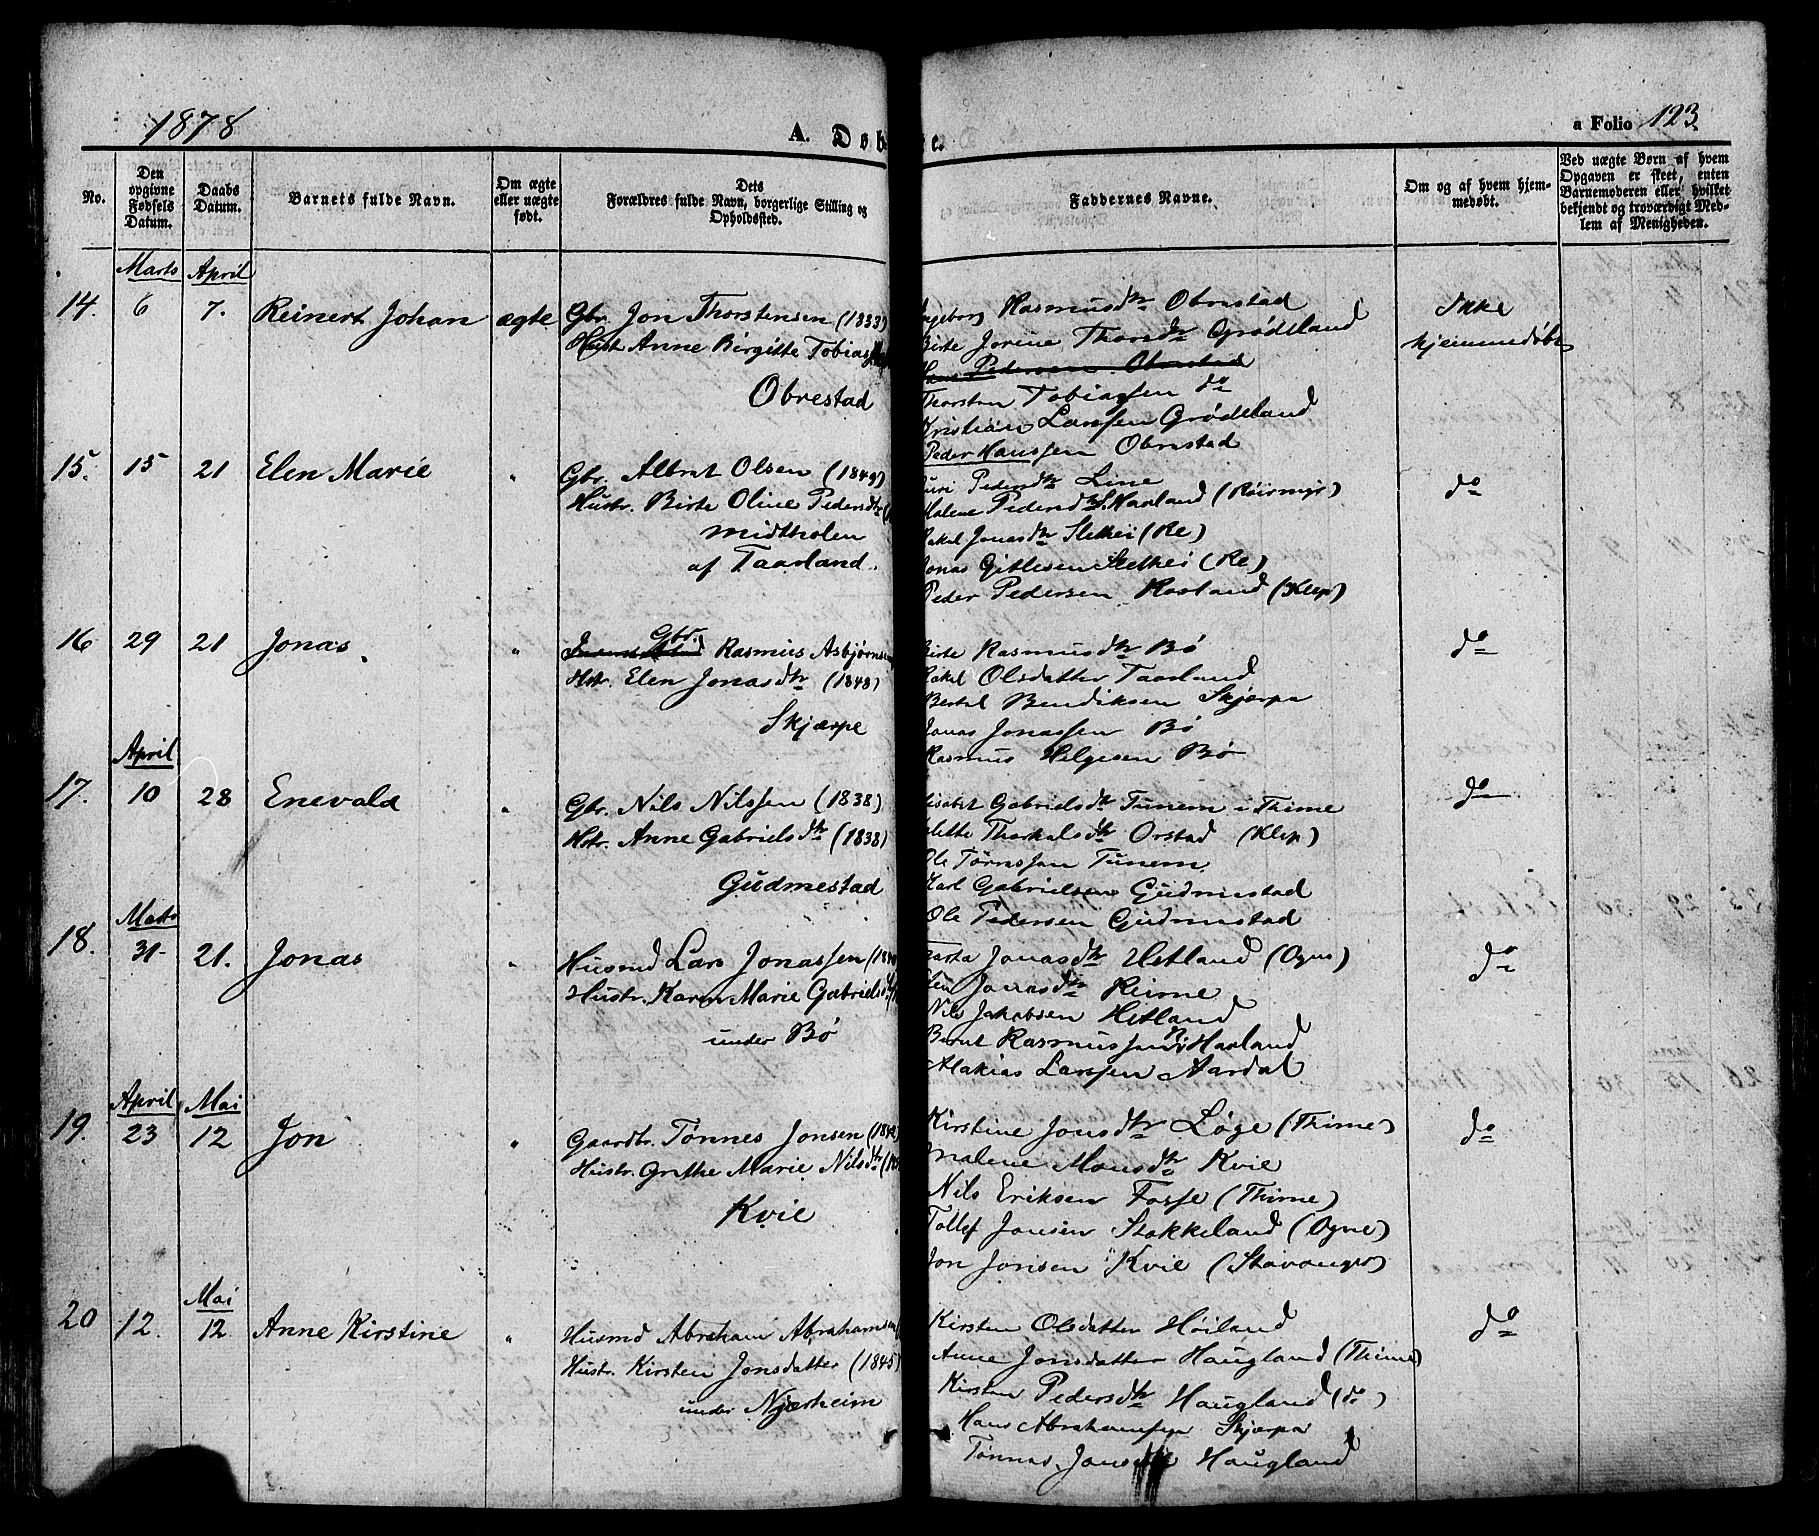 1878
A. Døbte.
a Folio 123
No.
Den opgivne Fødsels Datum.
Daabs Datum.
Barnets fulde Navn.
Om ægte eller uægte født.
Dets Forældres fulde Navn, borgerlige Stilling og Opholdssted.
Faddernes Navne.
Om og af hvem hjemmedøbt.
Ved uægte Børn af hvem Opgaven er skeet, enten Barnemoderen eller hvilket bekjendt og troværdigt Medlem af Menigheden.
Marts April
14. 6 7. Reinert Johan ægte Gbr. Jon Thorstensen (1833)
Hust Anne Birgitte Tobias
Obrestad
Ingeborg Rasmusdtr Obrestad
Birte Jorine Thorsdtr Grødeland
Hans Pedersen Obrestad
Thorsten Tobiassen do
Kristian Larssen Grødeland
Peder Hanssen Obrestad
Ikke
hjemmedøbt
15. 15 21 Elen Marie " Gbr. Albret Olsen (1849)
Hustr. Birte Oline Pedersdtr
Midtholen
af Taarland.
Guri Pedersdtr Line
Malene Pedersdtr S. Haaland
Rakel Jonasdtr Slethei (Re)
Jonas Gitlesen Slethei (Re)
Peder Pedersen (Klep)
do
16 29 21 Jonas. " Gbr. Rasmus Asbjørnsen
Hstr. Elen Jonasdtr (1848)
Skjærpe
Birte Rasmusdtr Bø
Rakel Olsdatter Taarland
Bertel Bendiksen Skjærpe
Jonas Jonassen Bø
Rasmus Helgesen Bø
do
April
17. 10 28 Enevald " Gbr. Nils Nilssen (1838)
Hstr. Anne Gabrielsdtr (1838)
Gudmestad
Lisabet Gabrielsdtr Tunem i Thime
Thorkelsdtr Orstad (Klep)
Ole Tørressen Tunem
Karl Gabrielsen Gudmestad
Ole Pedersen Gudmestad
do
Marts
18. 31 21. Jonas " Husmd Lars Jonassen
Hustr. Karen Marie Gabriels
under Bø
Marta Jonasdtr Hetland (Ogne)
Elen Jonasdtr Reime
Nils Jakobsen Hetland
Bernt Rasmussen N. Haaland
Malkias Larssen Aardal
do
April Mai
19. 23 12 Jon " Gaardbr. Tønnes Jonsen
Hustr. Grethe Marie Nilsdtr
Kvie
Kirstine Jonsdtr Løge (Thime)
Malene Monsdtr Kvie
Nils Eriksen Fosse (Thime)
Tollef Jonsen Stokkeland (Ogne)
Jon Jonsen Kvie (Stavanger)
do
Mai
20 12. 12 Anne Kirstine " Husmd Abraham Abrahamsen
Hustr. Kirsten Jonsdatter (1845)
under Njærheim
Kirsten Olsdatter Høiland
Anne Jonsdatter Haugland (Thime)
Kirsten Pedersdtr Haugland (do)
Hans Abrahamsen Skjærpe
Tønnes Haugland
do